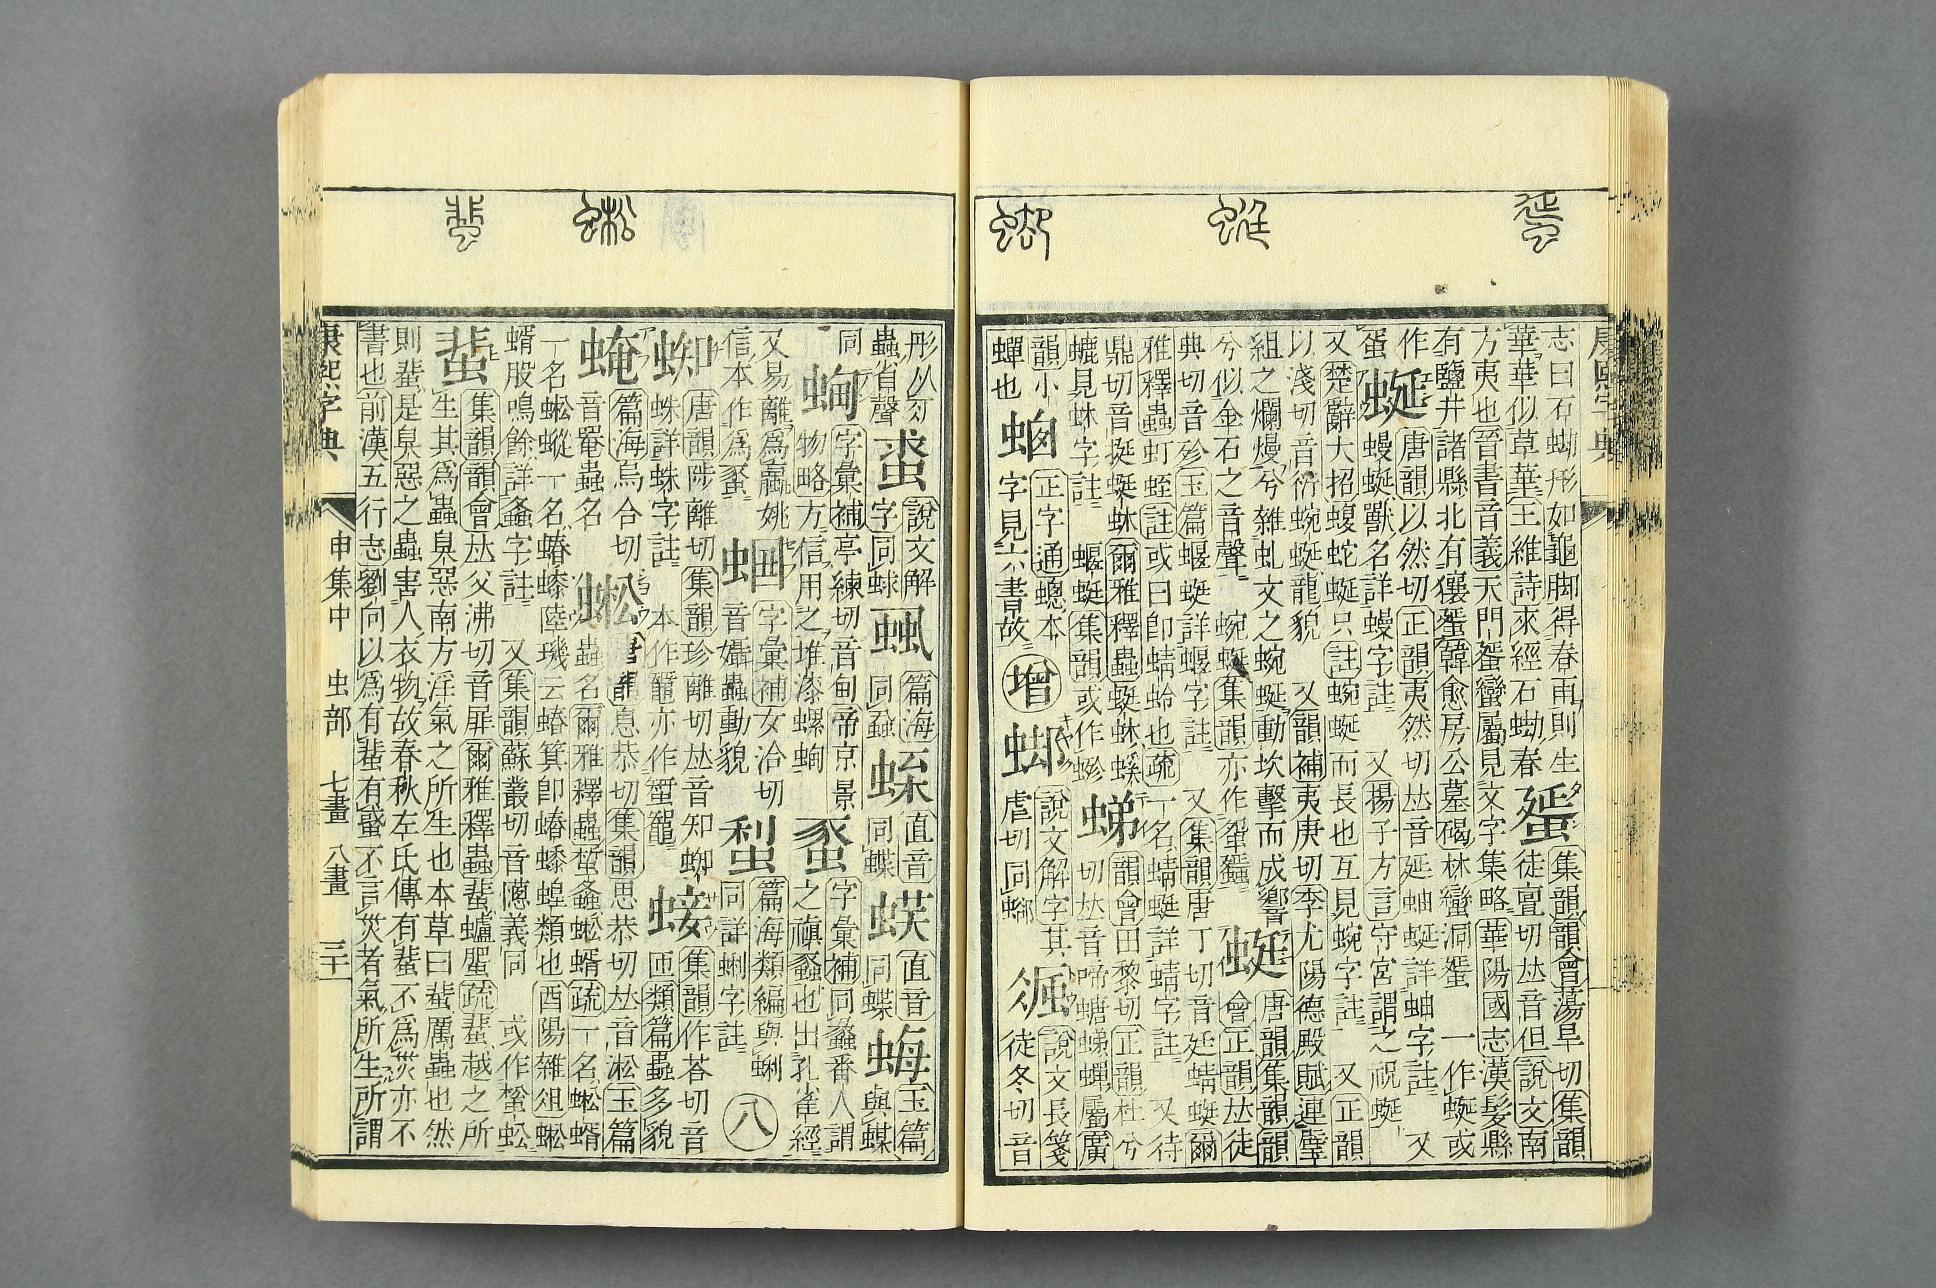 志曰石蚴形如龜脚得春雨則生
華華似草華王維詩來經石蚴春
蜑
集韻韻會蕩旱切集韻
徒亶切𠀤音但說文南
方夷也晉書音義天門蜑蠻屬見文字集略華陽國志漢髮縣
有鹽井諸縣北有獽蜑韓愈房公墓碣林蠻洞蜑 一作蜒或
作
蜑
蜒
唐韻以然切正韻夷然切𠀤音延蚰蜒詳蚰字註 又
蟃蜒獸名詳蟃字註 又揚子方言守宮謂之祝蜒
又楚辭大招蝮蛇蜒只註蜿蜒而長也互見蜿字註 又正韻
以淺切音衍蜿蜒龍貌 又韻補夷庚切李尤陽德殿賦連璧
組之爛熳兮雜虬文之蜿蜒動坎擊而成響
兮似金石之音聲 蜿蜒集韻亦作
蜓
唐韻集韻韻
會正韻𠀤徒
典切音殄玉篇蝘蜓詳蝘字註 又集韻唐丁切音廷蜻蜓爾
雅釋蟲虰蛵註或曰卽蜻蛉也疏一名蜻蜓詳蜻字註 又待
鼎切音挺蜓蚞爾雅釋蟲蜓蚞螇
螰見蚞字註 蝘蜓集韻或作
蜳
韻會田黎切正韻杜兮
切𠀤音啼螗蜩蟬屬廣
韻小
蟬也
正字通蟌本
字見六書故
增
說文解字其
虐切同
說文長箋
徒冬切音
彤从
蟲省聲
蛷
說文解
字同蛷
篇海
同蝨
直音
同蝶
直音
同蝶
玉篇
與蟆
同
蜔
字彙補亭練切音甸帝京景
物略方信用之堆漆螺蜔
字彙補同蠡番人謂
之禛蠡也出孔雀經
又易離爲蠃姚
信本作爲蠡
字彙補女洽切
音囁蟲動貌
篇海類編與蜊
同詳蜊字註
八
蜘
唐韻陟離切集韻珍離切𠀤音知蜘
蛛詳蛛字註 本作鼅亦作
集韻作荅切音
匝類篇蟲多貌
蜦
篇海烏合切
音罨蟲名
蜙
唐韻息恭切集韻思恭切𠀤音淞玉篇
蟲名爾雅釋蟲蜤螽蜙蝑疏一名蜙蝑
一名蜙䗥一名蝽蟍陸璣云蝽箕卽蝽蟍蝗類也酉陽雜俎蜙
蝑股鳴餘詳螽字註 又集韻蘇叢切音憽義同 或作䗋蚣
蜚
集韻韻會𠀤父沸切音屝爾雅釋蟲蜚蠦蜰疏蜚越之所
生其爲蟲臭惡南方淫氣之所生也本草曰蜚厲蟲也然
則蜚是臭惡之蟲害人衣物故春秋左氏傳有蜚不爲災亦不
書也前漢五行志劉向以爲有蜚有蜮不言災者氣所生所謂
康熙字典
申集中 虫部 七畫 八畫 三十